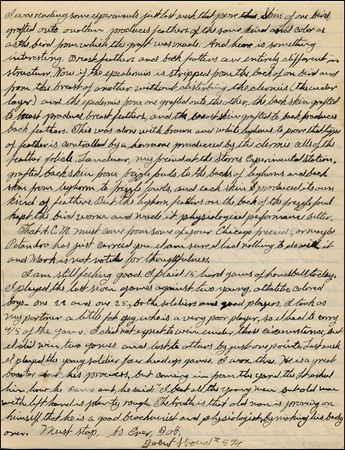 I was reading some experiments just last week that prove this. Skin of one bird
grafted onto another produces feathers of the same kind and color as
as the bird from which the graft was made. And here is something
interesting. Breast feathers and back feathers are entirely different in
structure. Now if the epidermis is stripped from the back of one bird and
from the breast of another without disturbing the dermis (the under
layer) and the epidermis from one grafted onto the other, the back skin grafted
to breast produces breast feathers, and the breast skin grafted to back produces
back feathers. This was done with brown and white leghorns to prove that type
of feather is controlled by a hormone produced by the dermis cells of the
feather follicle. Landauer, my friend at the Storrs Experimental Station,
grafted back skin from frizzle fowls to the backs of leghorns and back
skin from leghorn to frizzle fowls, and each skin produced its own
kind of feathers. But the leghorn feathers on the back of the frizzle fowl
kept the bird warm and made its physiological performance better.
That A.C.M. must come from some of your Chicago friends, or maybe
has just carried you. I am sure I had nothing to do with it
and Mark is not noted for thoughtfulness.
I am still feeling good. I played 15 hard games of handball today.
I played the last seven games against two young, athletic colored
boys - one 22 and one 25, both soldiers and good players. I took as
my partner a little fat guy who is a very poor player, so I had to carry
4/5 of the game. I did not expect to win under those circumstances, but
I did win two games and lost the others by just one point. Last week
I played the young soldier four handicap games. I won three. He is a great
boaster of his prowess, but coming in from the yard the others asked
him how he came out, he said: "I beat all the young men but old man
with left hand is plenty rough. The truth is that old man is proving on
himself that he is a good biochemist and physiologist by making his body
over. Must stop. As Ever, Bob.
Robert Stroud # 594